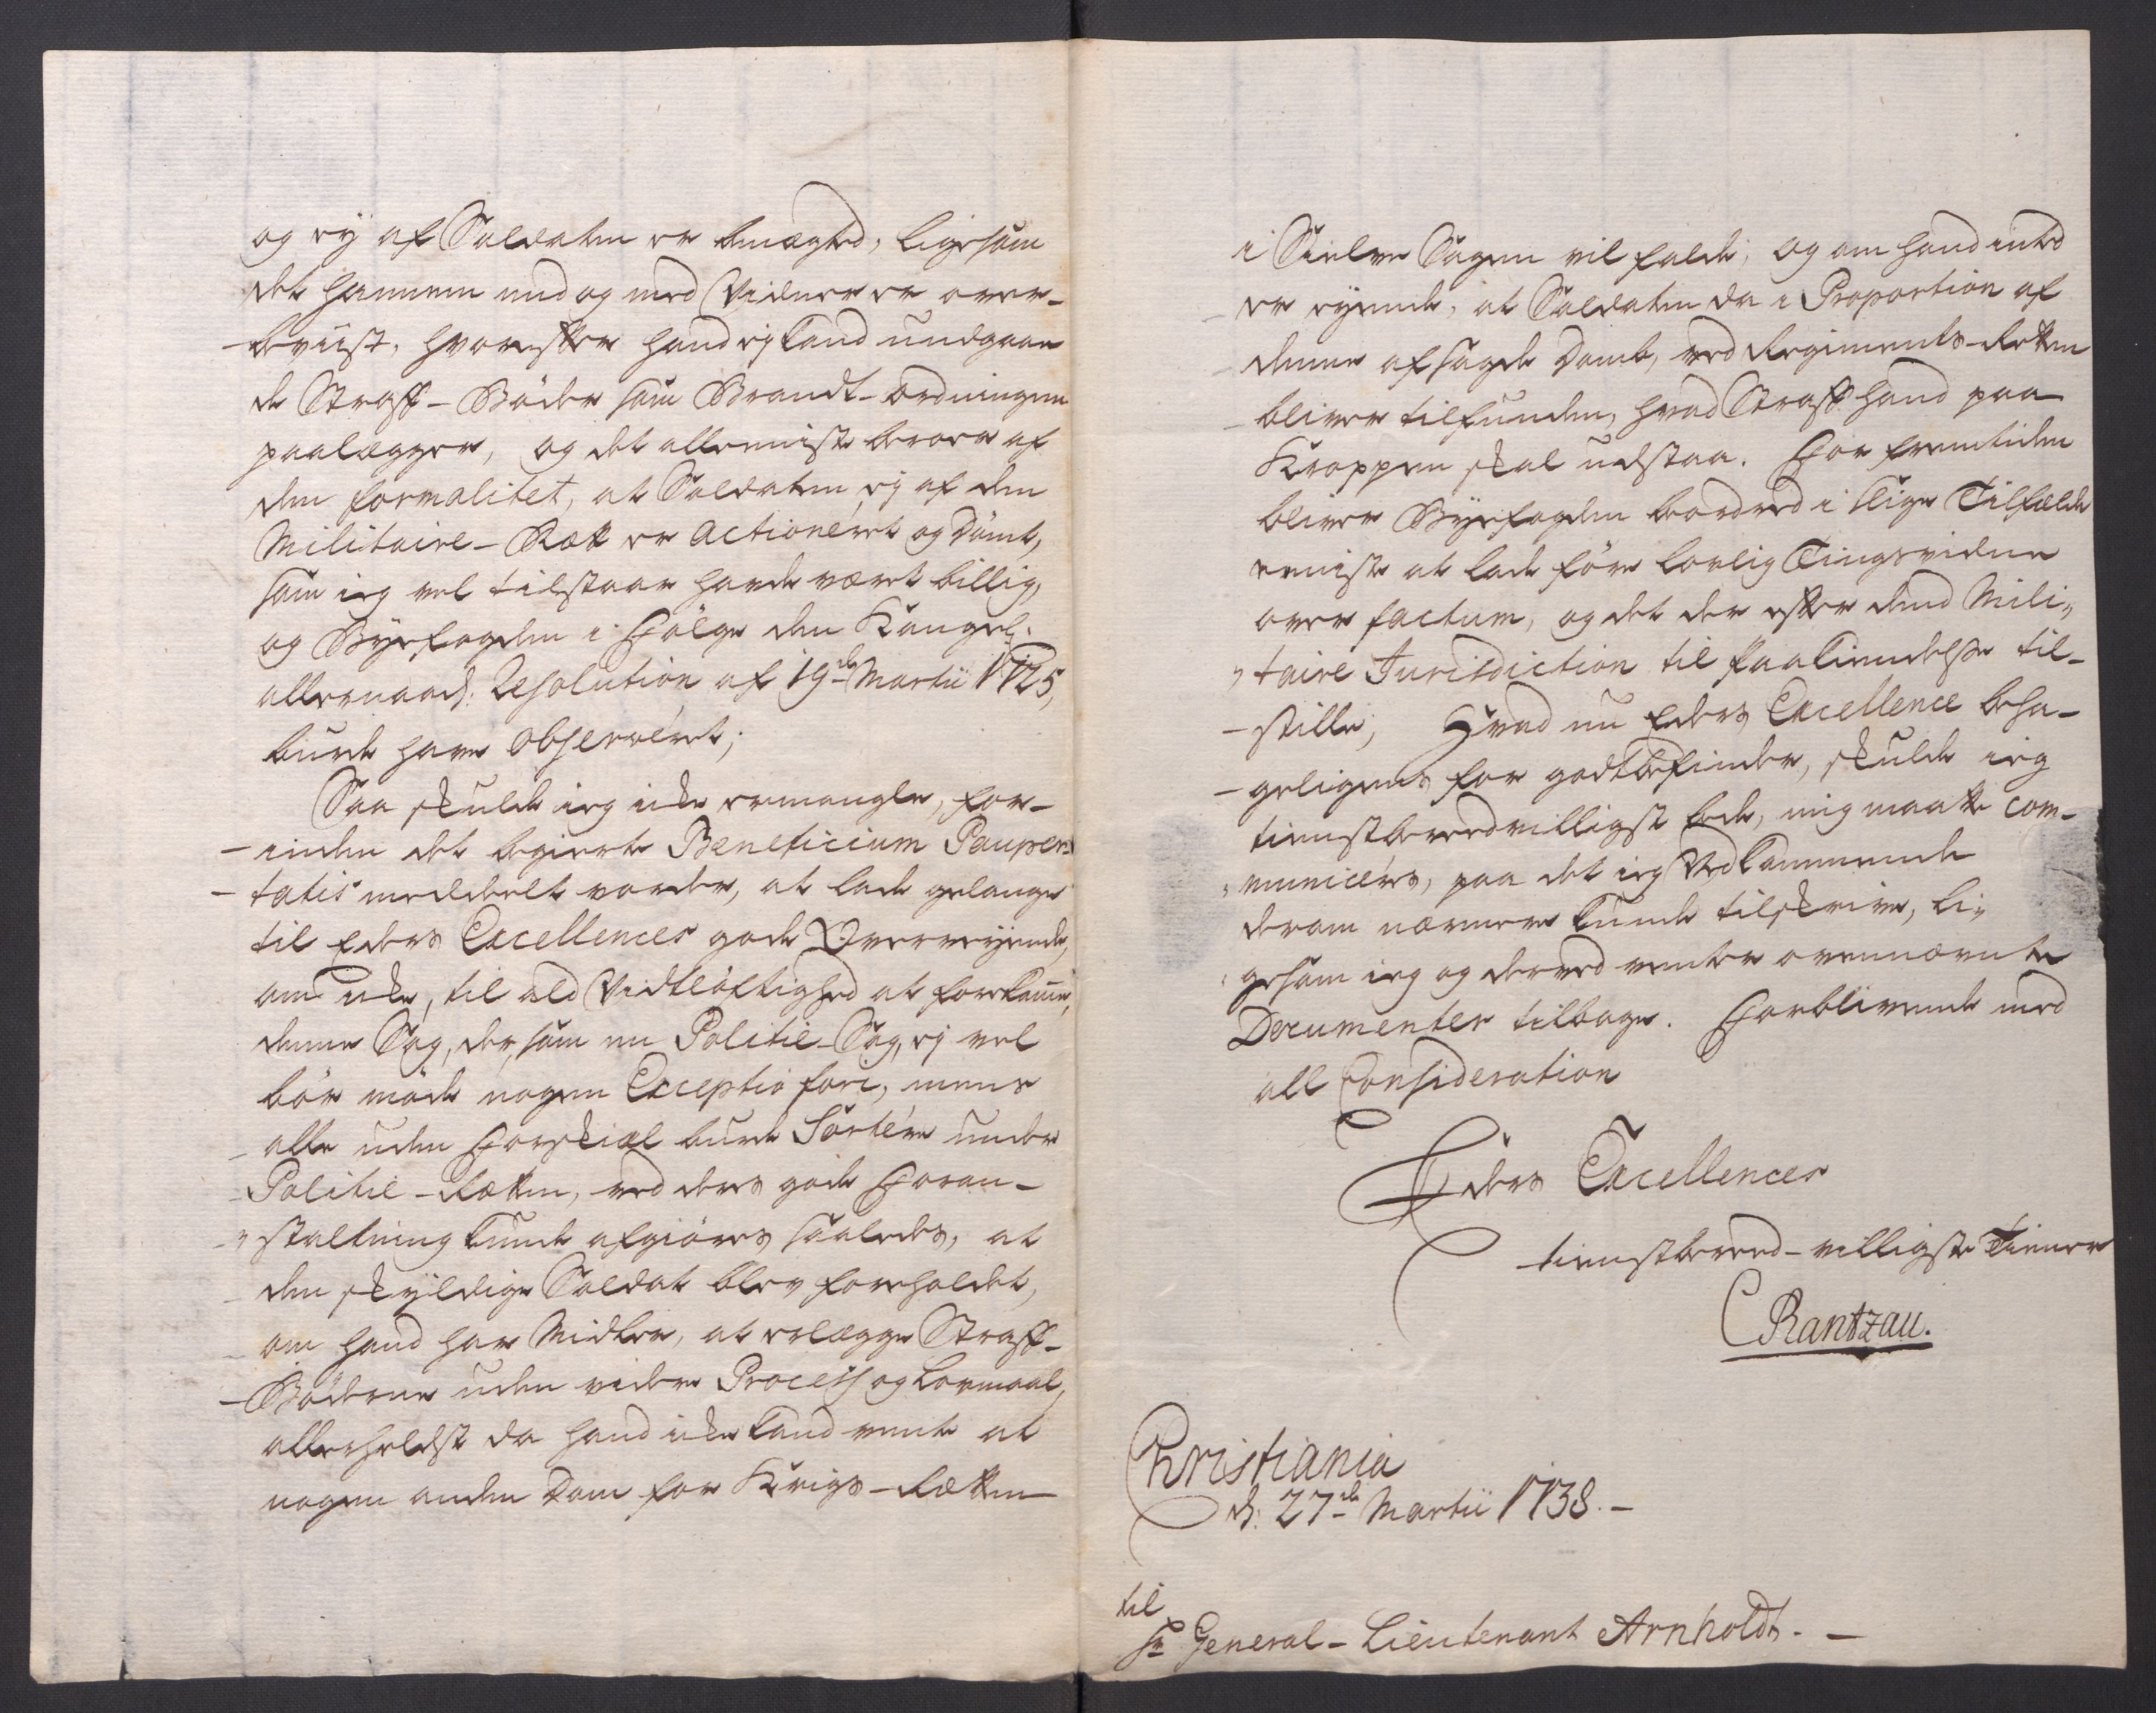 og ey af Soldaten er benægted, ligesom
det hannem end og med Vidner er over-
-beviist, hvorefter hand ej kand undgaae
de Straff-Böder som Brandt-Ordningen
paalægger, og det alleeniste beroer af
den formalitet, at Soldaten ej af den
Militaire-Ræt er Actionéret og Dömt,
som ieg vel tilstaar havde været billig,
og Byefogden i Fölge den Kongel:
allernaad: Resolution af 19de Martii 1725,
burde have Observéret;
Saa skulde ieg icke ermangle, for-
-inden det begierte Beneficium Pauper-
-tatis meddeelt vorder, at lade gelange
til Eders Excellences gode Overveyende,
om icke, til ald Vidtlöftighed at forekomme,
denne Sag, der, som en Politie-Sag, ej vel
bör möde nogen Exceptio fori, mens
alle uden Forskiæl burde Sortére under
Politie-Rætten, ved deres gode Foran-
-staltning kunde afgiöres saaledes, at
den skyldige Soldat blev foreholdet,
om hand har Midler, at erlægge Straff-
-Böderne uden videre Process og Lovmaal,
allerheldst da hand icke kand vente at
nogen anden Dom for Krigs-Rætten
i Sielve Sagen vil falde; og om hand inted
er eyende, at Soldaten da i Proportion af
denne afsagde Domb, ved Regiments-Retten
bliver tilfunden, hvad Straff hand paa
Kroppen skal udstaa. For fremtiden
bliver Byefogden beordred i slige Tilfælde
eeniste at lade före lovlig Tingsvidne
over factum, og det der efter dend Mili-
-taire Jurisdiction til Paakiendelse til-
-stille; Hvad nu Eders Excellence beha-
-geligens for godtbefinder, skulde ieg
tienstbereedvilligst bede, mig maatte com-
-municéres, paa det ieg Vedkommende
derom nærmere kunde tilskrive, li-
-gesom ieg og derved venter ovennævnte
Documenter tilbage. Forblivende med
all Consideration
Eders Excellences
tienstbereed-villigste Tienner
C Rantzau.
Christiania
d: 27de Martii 1738.-
til
Hr General-Lieutenant Arnholdt.-